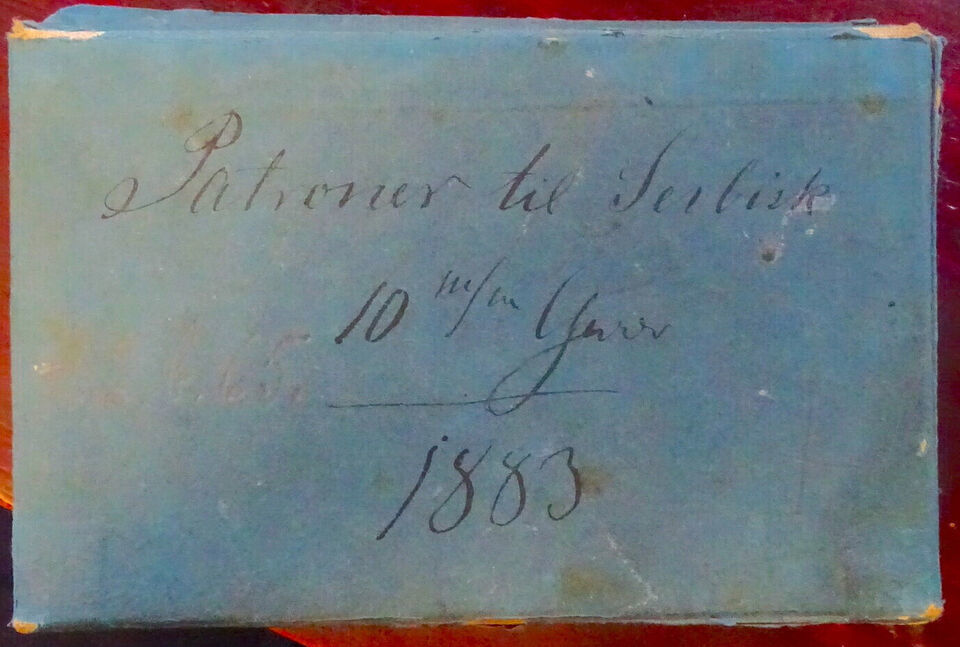 Patroner til Serbisk
10 m/m Gevær
1883